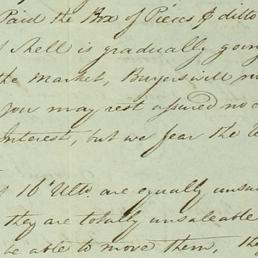 Paid the Box of Pieces & ditto
Shell is gradually going
the Market, Buyers will
you may rest assured no
Interest, but we fear the
10th Ulto. are equally
they are totally unsaleable
be able to move them,